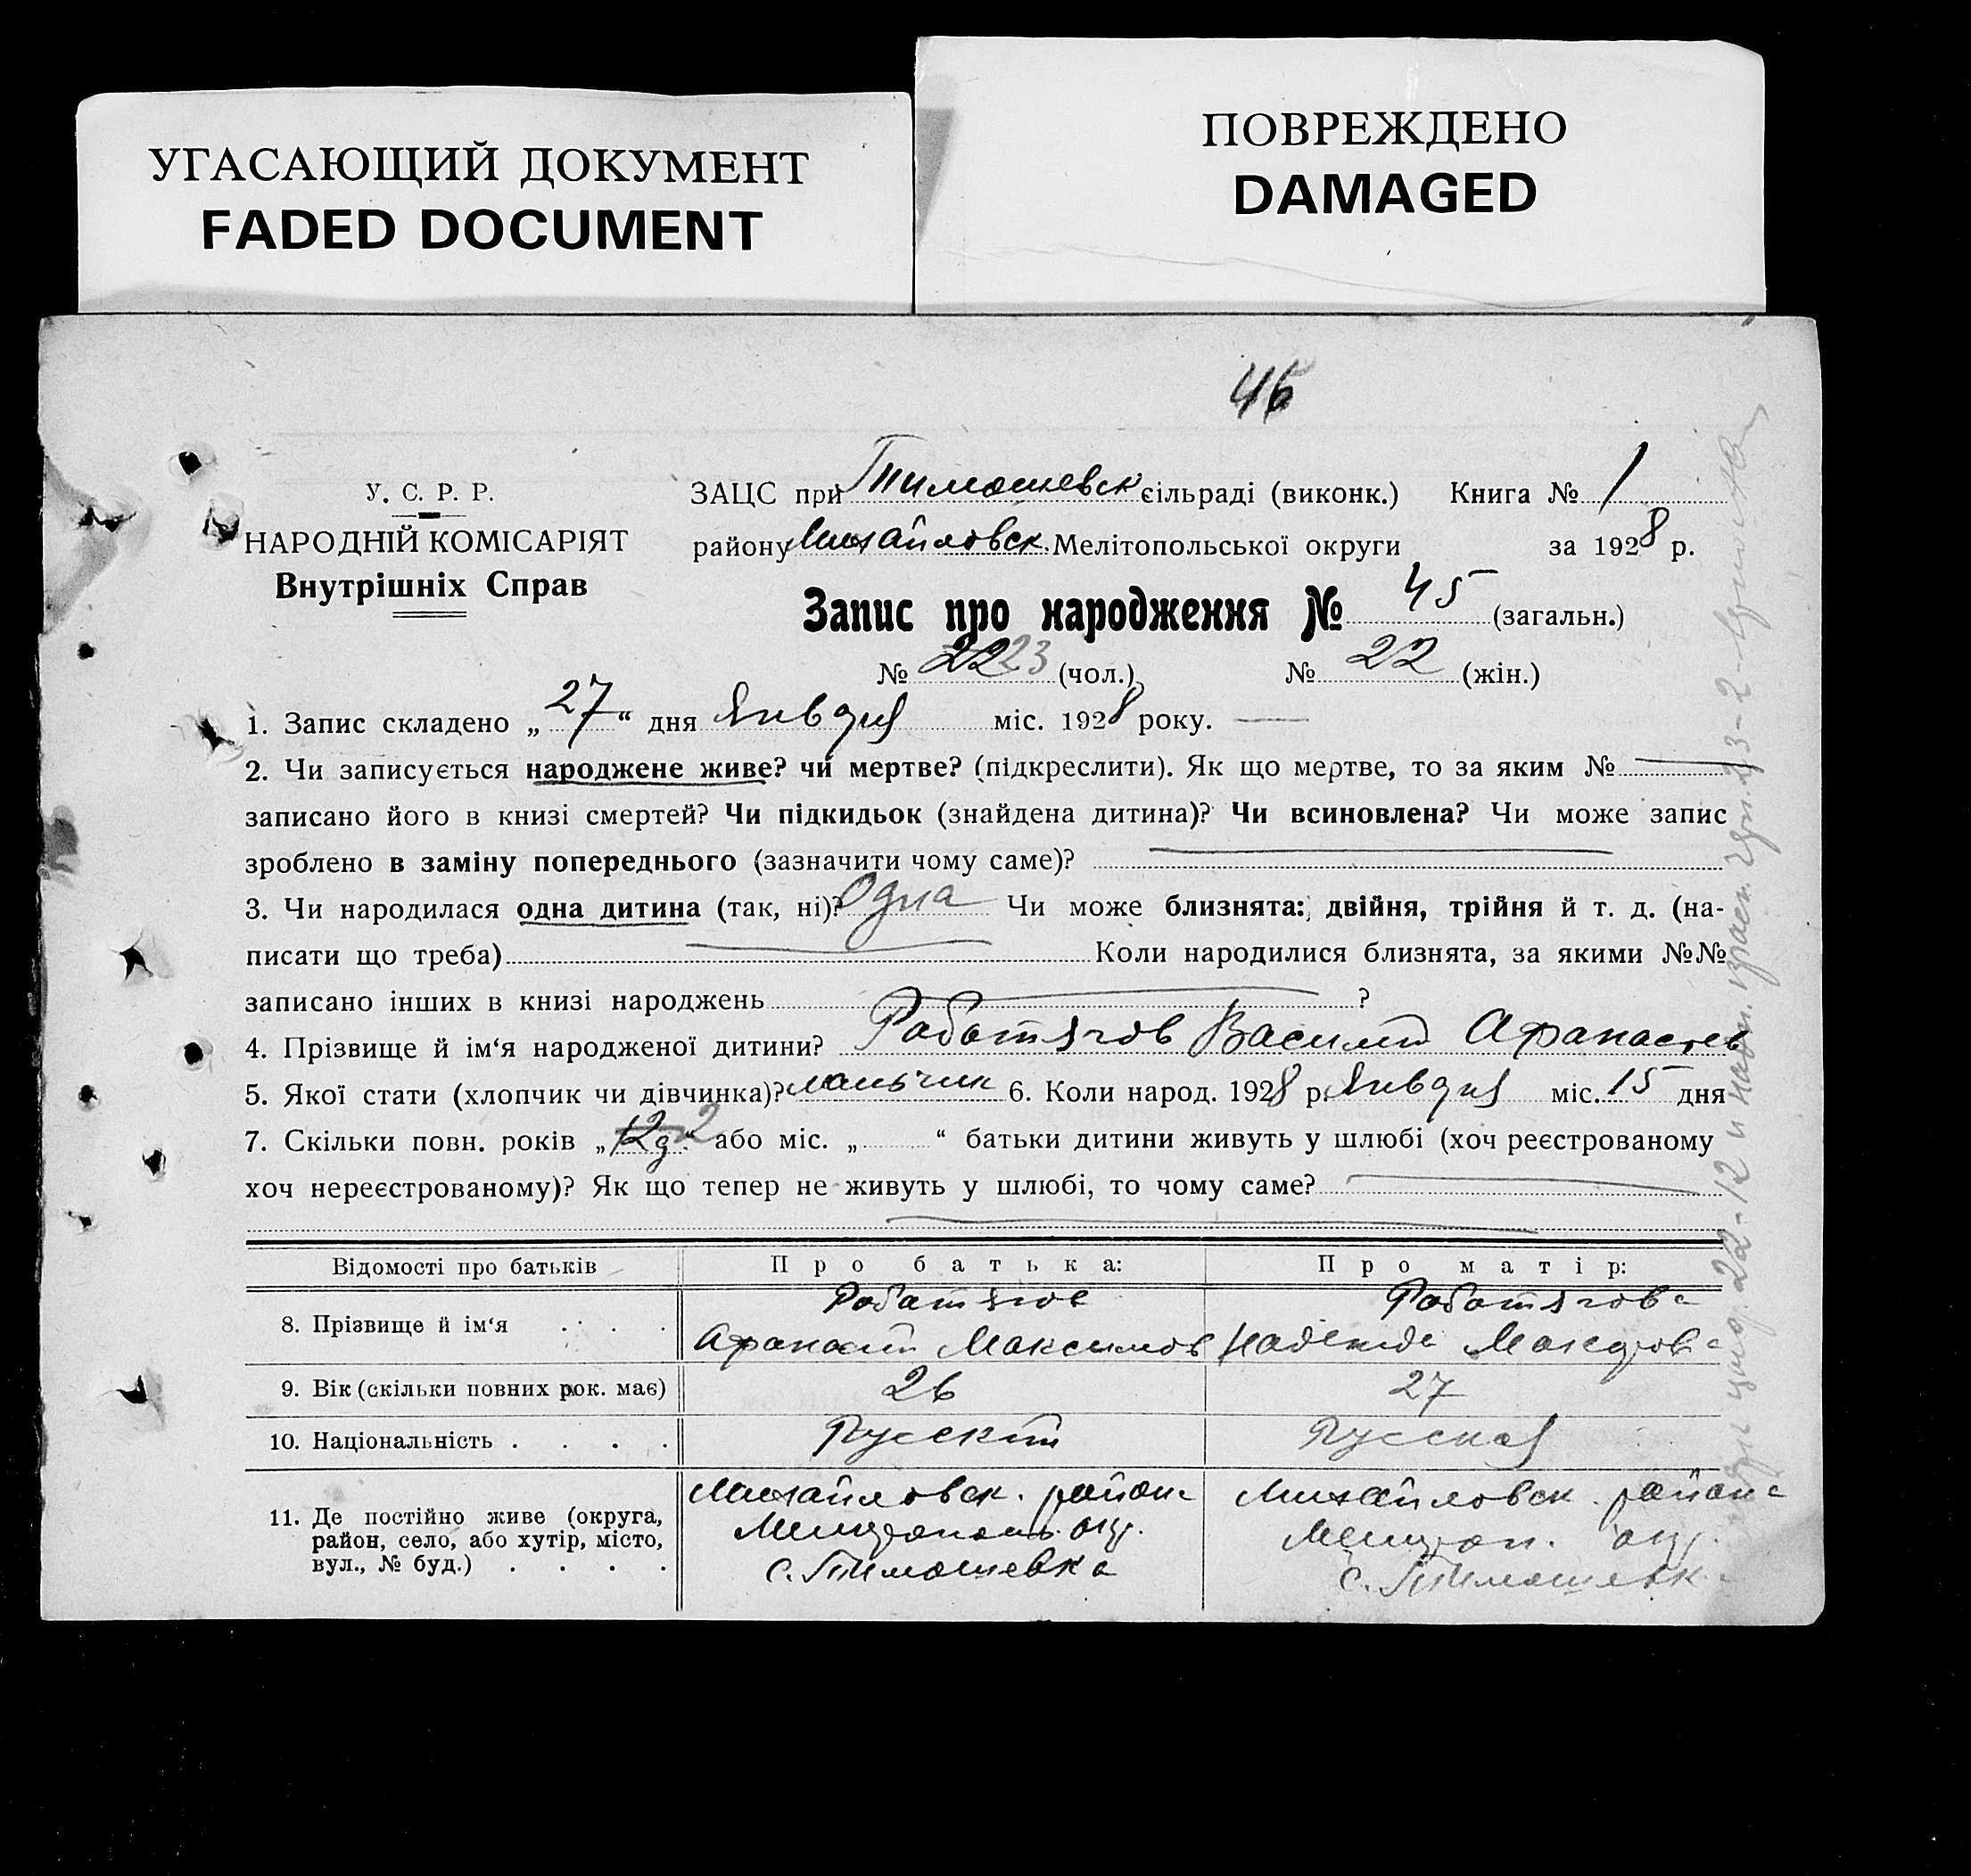 УГАСАЮЩИЙ ДОКУМЕНТ
FADED DOCUMENT
ПОВРЕЖДЕНО
DAMAGED
46
У. С. Р. Р.
НАРОДНІЙ КОМІСАРІЯТ
Внутрішніх Справ
ЗАЦС при Тимошевск сільраді (виконк.) Книга № 1
району Михайловск. Мелітопольської округи за 1928 р.
Запис про народження № 45 (загальн.)
№ 22 23 (чол.) № 22 (жін.)
1. Запис складено „27“ дня Января міс. 1928 року.
2. Чи записується народжене живе? чи мертве? (підкреслити). Як що мертве, то за яким №
записано його в книзі смертей? Чи підкидьок (знайдена дитина)? Чи всиновлена? Чи може запис
зроблено в заміну попереднього (зазначити чому саме)?
3. Чи народилася одна дитина (так, ні)? Одна Чи може близнята: двійня, трійня й т. д. (на-
писати що треба) Коли народилися близнята, за якими №№
записано інших в книзі народжень ?
4. Прізвище й ім‘я народженої дитини? Работягов Василий Афанасьев
5. Якої стати (хлопчик чи дівчинка)? мальчик 6. Коли народ. 1928 р. Января міс. 15 дня
7. Скільки повн. років „ 2 “ або міс. „ “ батьки дитини живуть у шлюбі (хоч реєстрованому
хоч нереєстрованому)? Як що тепер не живуть у шлюбі, то чому саме?
Відомості про батьків Про батька: Про матір:
8. Прізвище й ім‘я . . . . Работягов Афанасий Максимов Работягова Надежда
9. Вік (скільки повних рок. має) 26 27
10. Національність . . . . Русский Русская
11. Де постійно живе (округа, район, село, або хутір, місто, вул., № буд.) . . . .
Михайловск. района Мелитополь. окр. с. Тимошевка
Михайловск. района Мелитоп. окр. с. Тимошевка